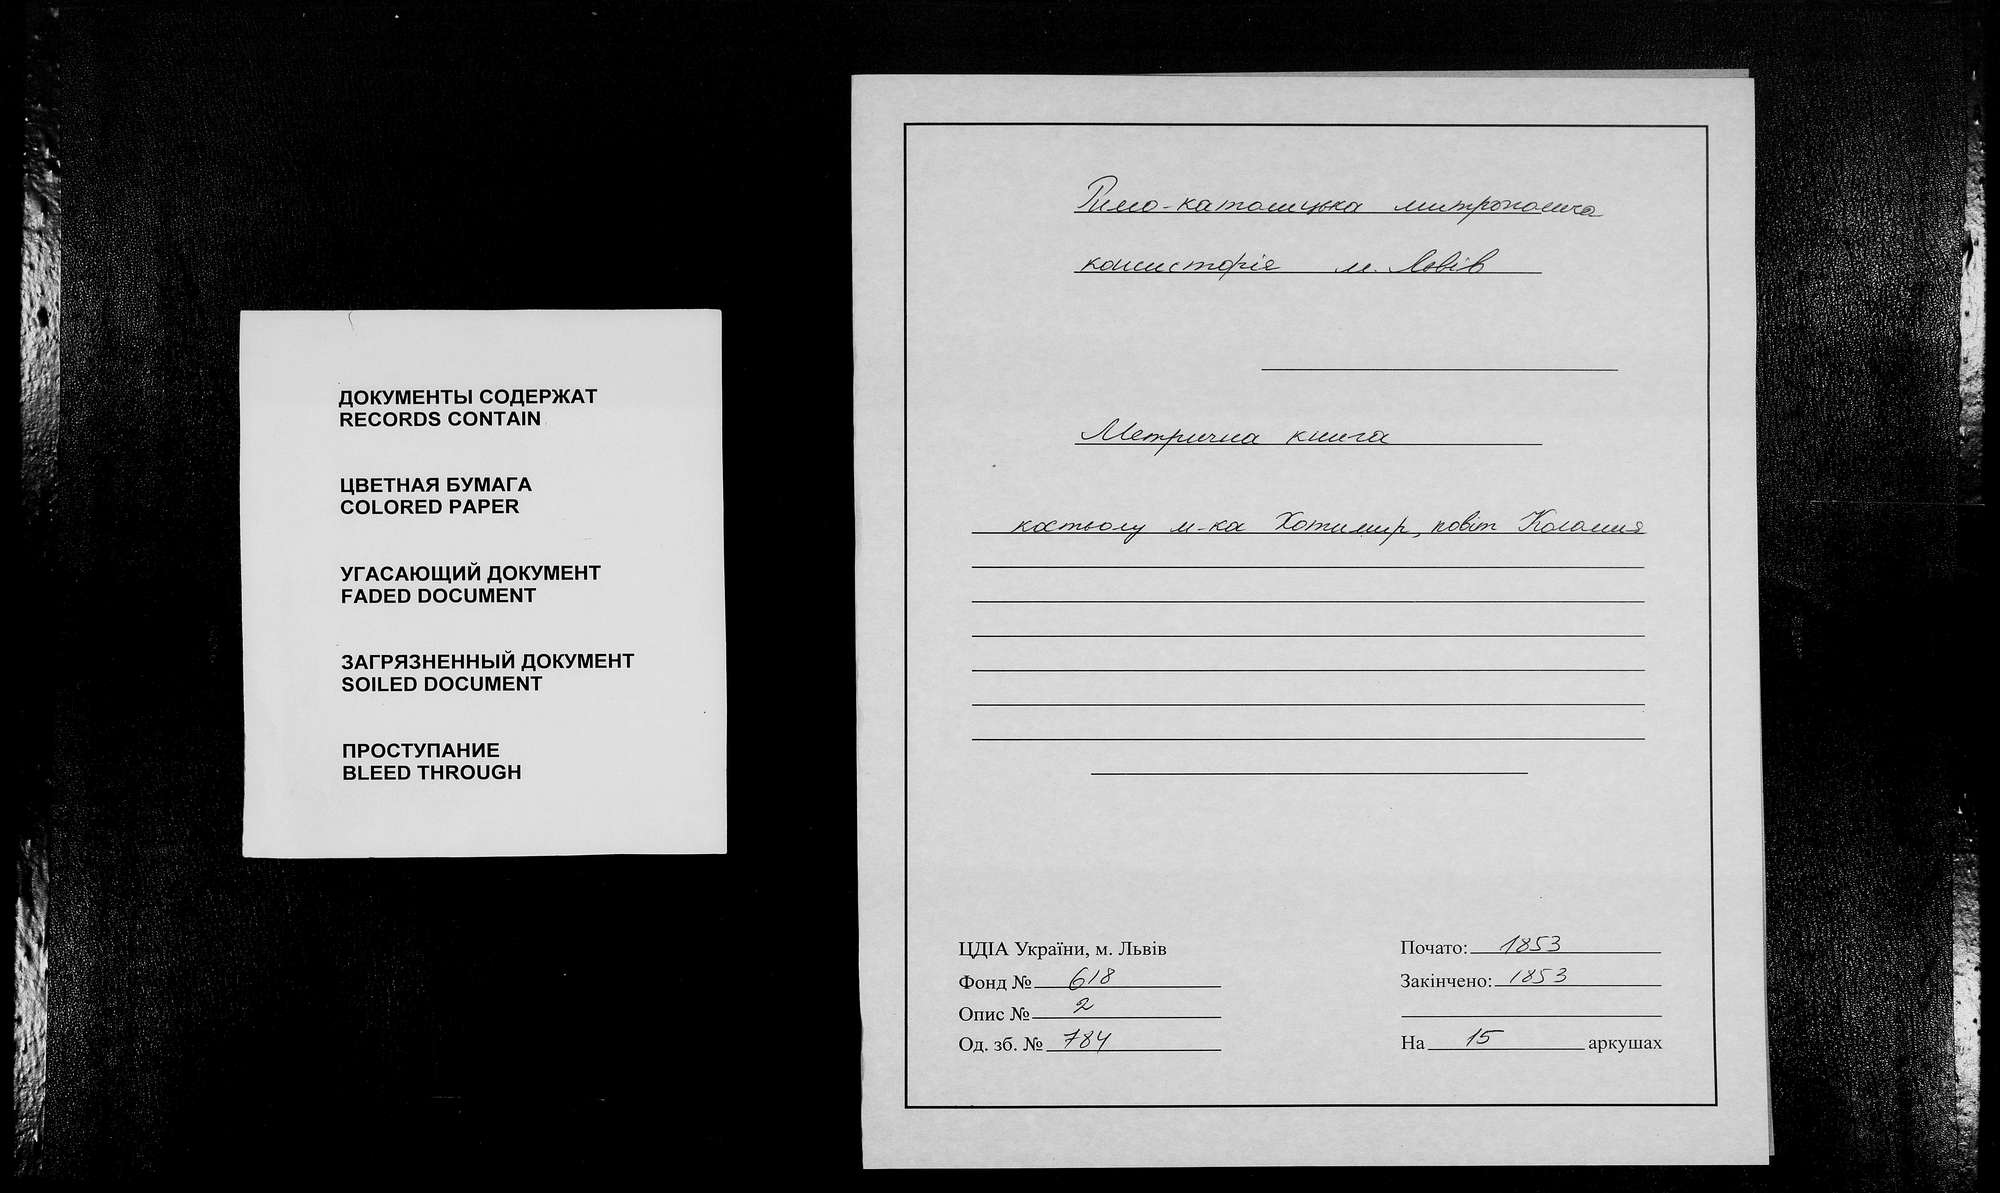 ДОКУМЕНТЫ СОДЕРЖАТ
RECORDS CONTAIN
ЦВЕТНАЯ БУМАГА
COLORED PAPER
УГАСАЮЩИЙ ДОКУМЕНТ
FADED DOCUMENT
ЗАГРЯЗНЕННЫЙ ДОКУМЕНТ
SOILED DOCUMENT
ПРОСТУПАНИЕ
BLEED THROUGH
Римо-католицька митрополича
консисторія м. Львів
Метрична книга
костьолу м-ка Хотимир, повіт Коломия
ЦДІА України, м. Львів
Фонд № 618
Опис № 2
Од. зб. № 784
Почато: 1853
Закінчено: 1853
На 15 аркушах